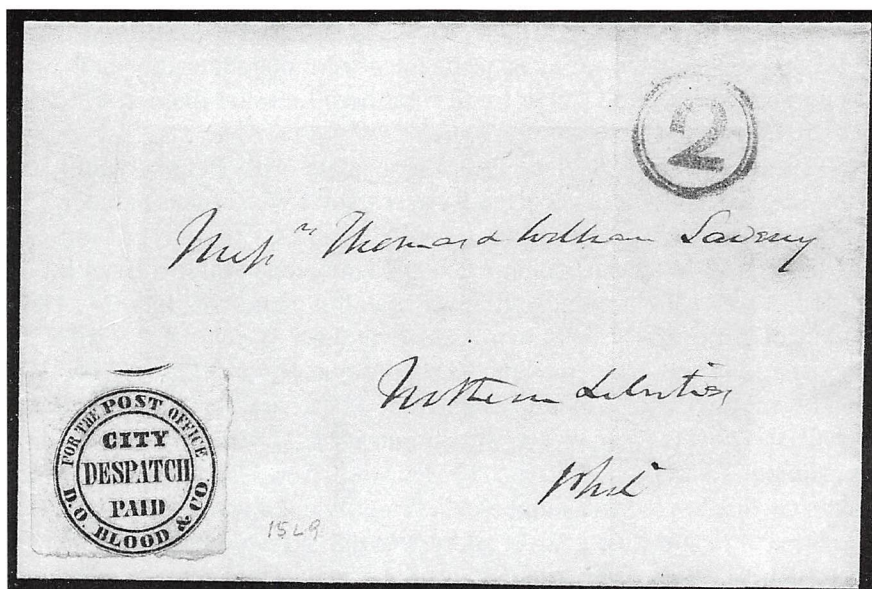 2
Messrs Thomas & William Savery
Northern Liberties
Phila
FOR THE POST OFFICE
CITY
DESPATCH
PAID
D.O. BLOOD & CO.
15L9